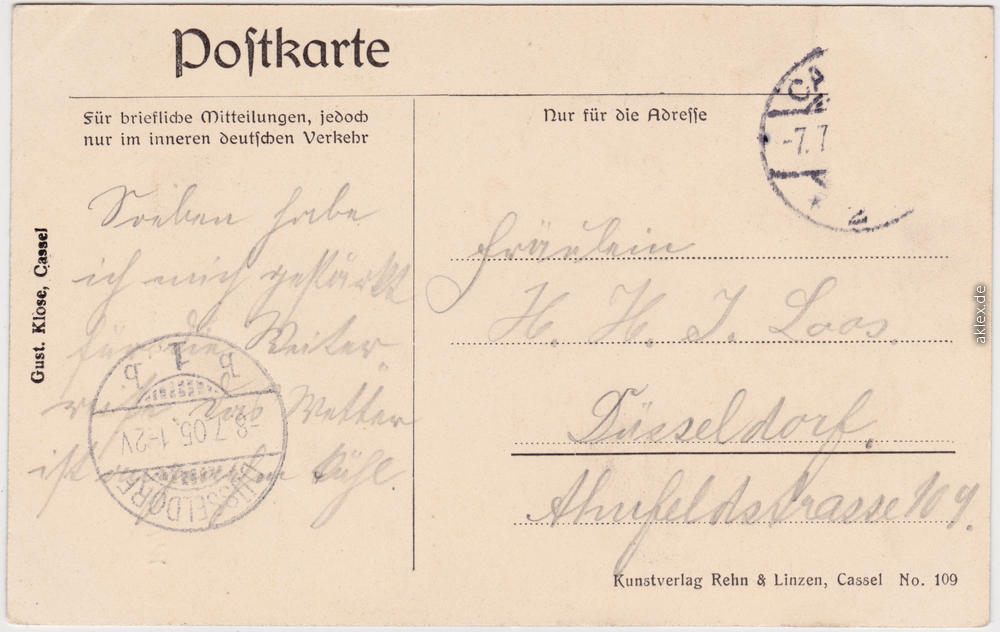 Postkarte
Für briefliche Mitteilungen, jedoch
nur im inneren deutschen Verkehr
Nur für die Adresse
CA
-7.7
Soeben habe
ich mich gestärkt
für die Weiter
reise das Wetter
ist kühl.
Gust. Klose, Cassel
DÜSSELDORF
8.7.05. 1-2V
1
b b
Fräulein
H. H. J. Loos.
Düsseldorf.
Ahnfeldstrasse 109.
Kunstverlag Rehn & Linzen, Cassel No. 109
aklex.de